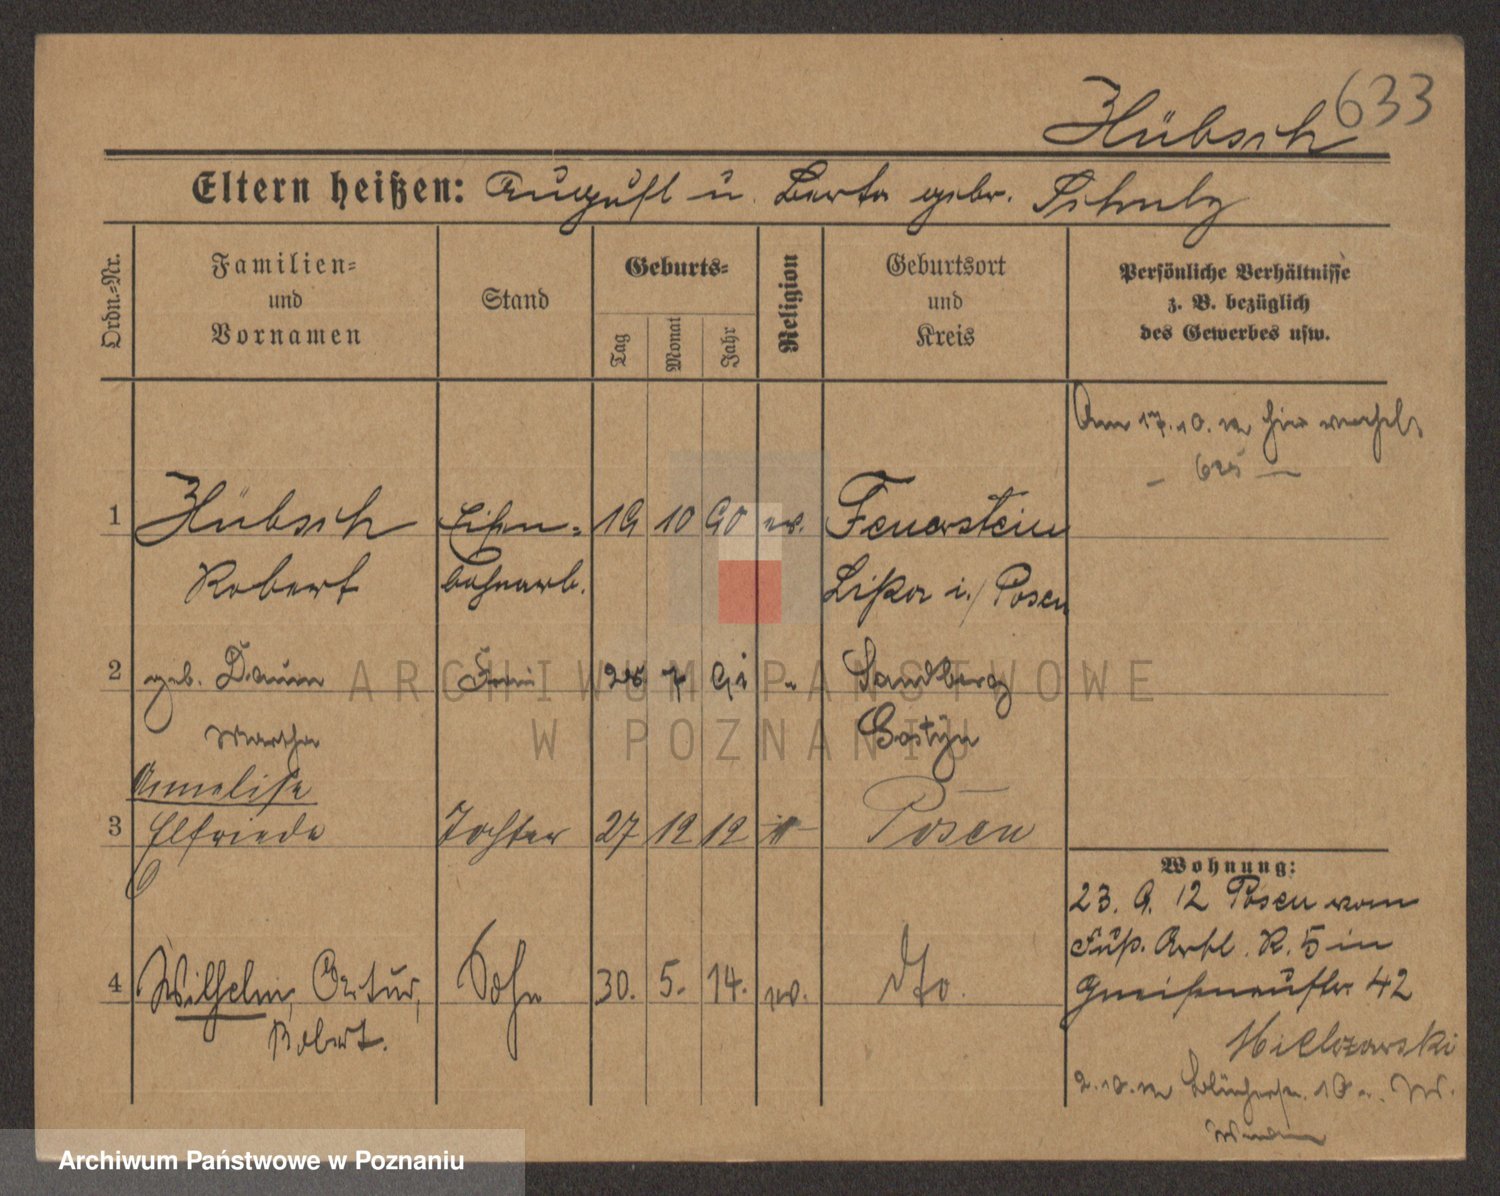 633
Hübsch
Eltern heißen: August u. Berta gebr. Schulz
Ordn.=Nr.
Familien=
und
Vornamen
Stand
Geburts=
Tag
Monat
Jahr
Religion
Geburtsort
und
Kreis
Persönliche Verhältnisse
z. B. bezüglich
des Gewerbes usw.
Am 17.10.12 hier verehel.
1 Hübsch Eisen= 19 10 90 ev. Feuerstein
Robert bahnarb. Lissa i./Posen
2 geb. Daum Frau 25. 7 91 " Sandberg
Martha Gostyn
Anneliese
3 Elfriede Tochter 27 12 12 Posen
Wohnung:
23. 9. 12 Posen vom
Fuß. Artl. R. 5 in
Gneisenaustr. 42
4 Wilhelm, Artur, Sohn 30. 5. 14. ev. dto.
Robert.
2.10.12 Blücherstr. 10
ARCHIWUM PAŃSTWOWE
W POZNANIU
Archiwum Państwowe w Poznaniu